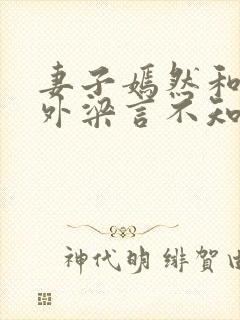 妻子嫣然和
外梁言不知
神代明 绯贺由